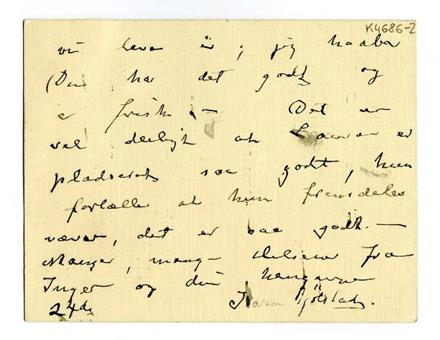 K4686-2
vi leve i; jeg haaber
Du har det godt og
er frisk - Det er
vel deiligt at er
pladseret saa godt, hun
fortælle at hun fremdeles
væver, det er saa godt. -
Mange, mange hilsener fra
Inger og din hengivne
24de Karen